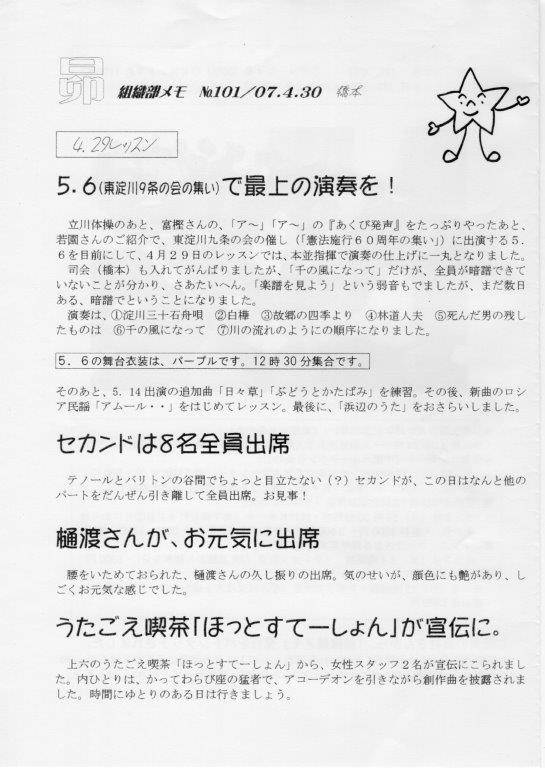 昴 組織部メモ №101/07.4.30 橋本
4.29レッスン
5.6(東淀川9条の会の集い)で最上の演奏を!
立川体操のあと、富樫さんの、「ア～」「ア～」の『あくび発声』をたっぷりやったあと、
若園さんのご紹介で、東淀川九条の会の催し(「憲法施行60周年の集い」)に出演する5.
6を目前にして、4月29日のレッスンでは、本並指揮で演奏の仕上げに一丸となりました。
司会(橋本)も入れてがんばりましたが、「千の風になって」だけが、全員が暗譜できて
いないことが分かり、さあたいへん。「楽譜を見よう」という弱音もでましたが、まだ数日
ある、暗譜でということになりました。
演奏は、①淀川三十石舟唄 ②白樺 ③故郷の四季より ④林道人夫 ⑤死んだ男の残し
たものは ⑥千の風になって ⑦川の流れのようにの順序になりました。
5.6の舞台衣装は、パープルです。12時30分集合です。
そのあと、5.14出演の追加曲「日々草」「ぶどうとかたばみ」を練習。その後、新曲のロシ
ア民謡「アムール・・」をはじめてレッスン。最後に、「浜辺のうた」をおさらいしました。
セカンドは8名全員出席
テノールとバリトンの谷間でちょっと目立たない(?)セカンドが、この日はなんと他の
パートをだんぜん引き離して全員出席。お見事!
樋渡さんが、お元気に出席
腰をいためておられた、樋渡さんの久し振りの出席。気のせいが、顔色にも艶があり、し
ごくお元気な感じでした。
うたごえ喫茶「ほっとすてーしょん」が宣伝に。
上六のうたごえ喫茶「ほっとすてーしょん」から、女性スタッフ2名が宣伝にこられまし
た。内ひとりは、かってわらび座の猛者で、アコーデオンを引きながら創作曲を披露されま
した。時間にゆとりのある日は行きましょう。